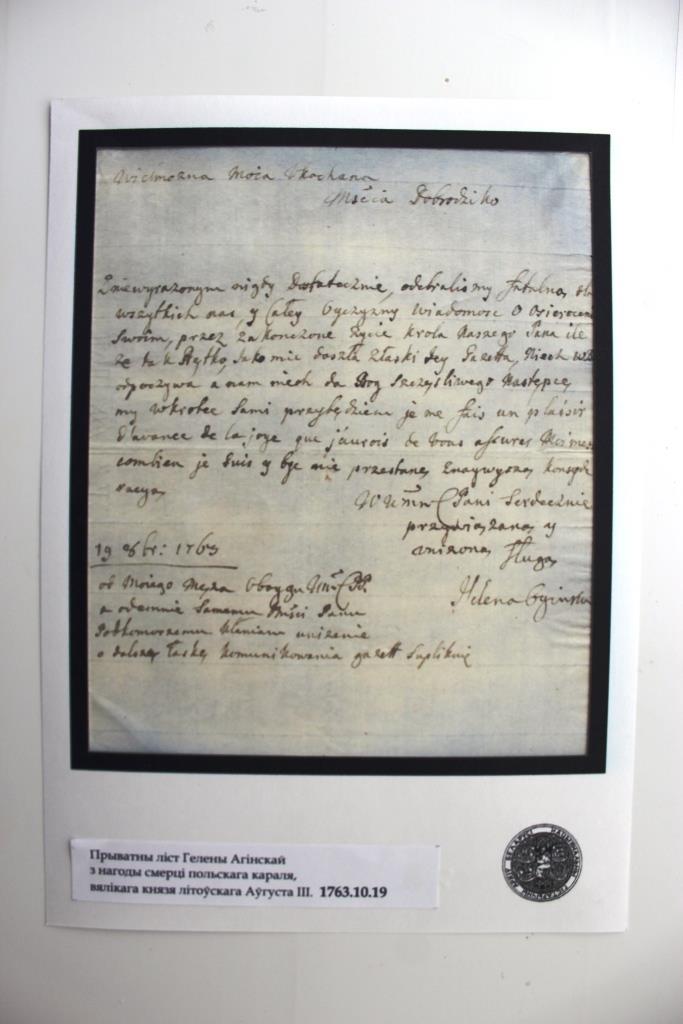 Wielmozna Moia Ukochana
Mścia Dobrodziko
Zniewyrazonym nigdy Dostatecznie, odebralismy fatalną dla
wszytkich nas, y Całey Oyczyzny Wiadomosc O Osieroceniu
Swoim, przez zakonczone Życie krola Naszego Pana ile
ze tak Prętko, Jako mie doszła złaski Jey Gazetta, Niech
odpoczywa a nam niech da Bog Szczęsliwego Następcę
my wkrotce Sami przybędziem je me fais un plaisir
d'avance de la joye que j'aurois de Vous assurer
combien je Suis y byc nie przestanę Znaywyszą konsyde
racyą
Pani Serdecznie
przywiązaną y
unizoną Sługą
19 8br: 1763
Helena Oginska
od Moiego Męza Oboygu
a odemnie Samemu Mści Panu
Podkomorzemu kłaniam unizenie
o dalszą łaskę komunikowania gazett Suplikuię
Прыватны ліст Гелены Агінскай
з нагоды смерці польскага караля,
вялікага князя літоўскага Аўгуста III. 1763.10.19